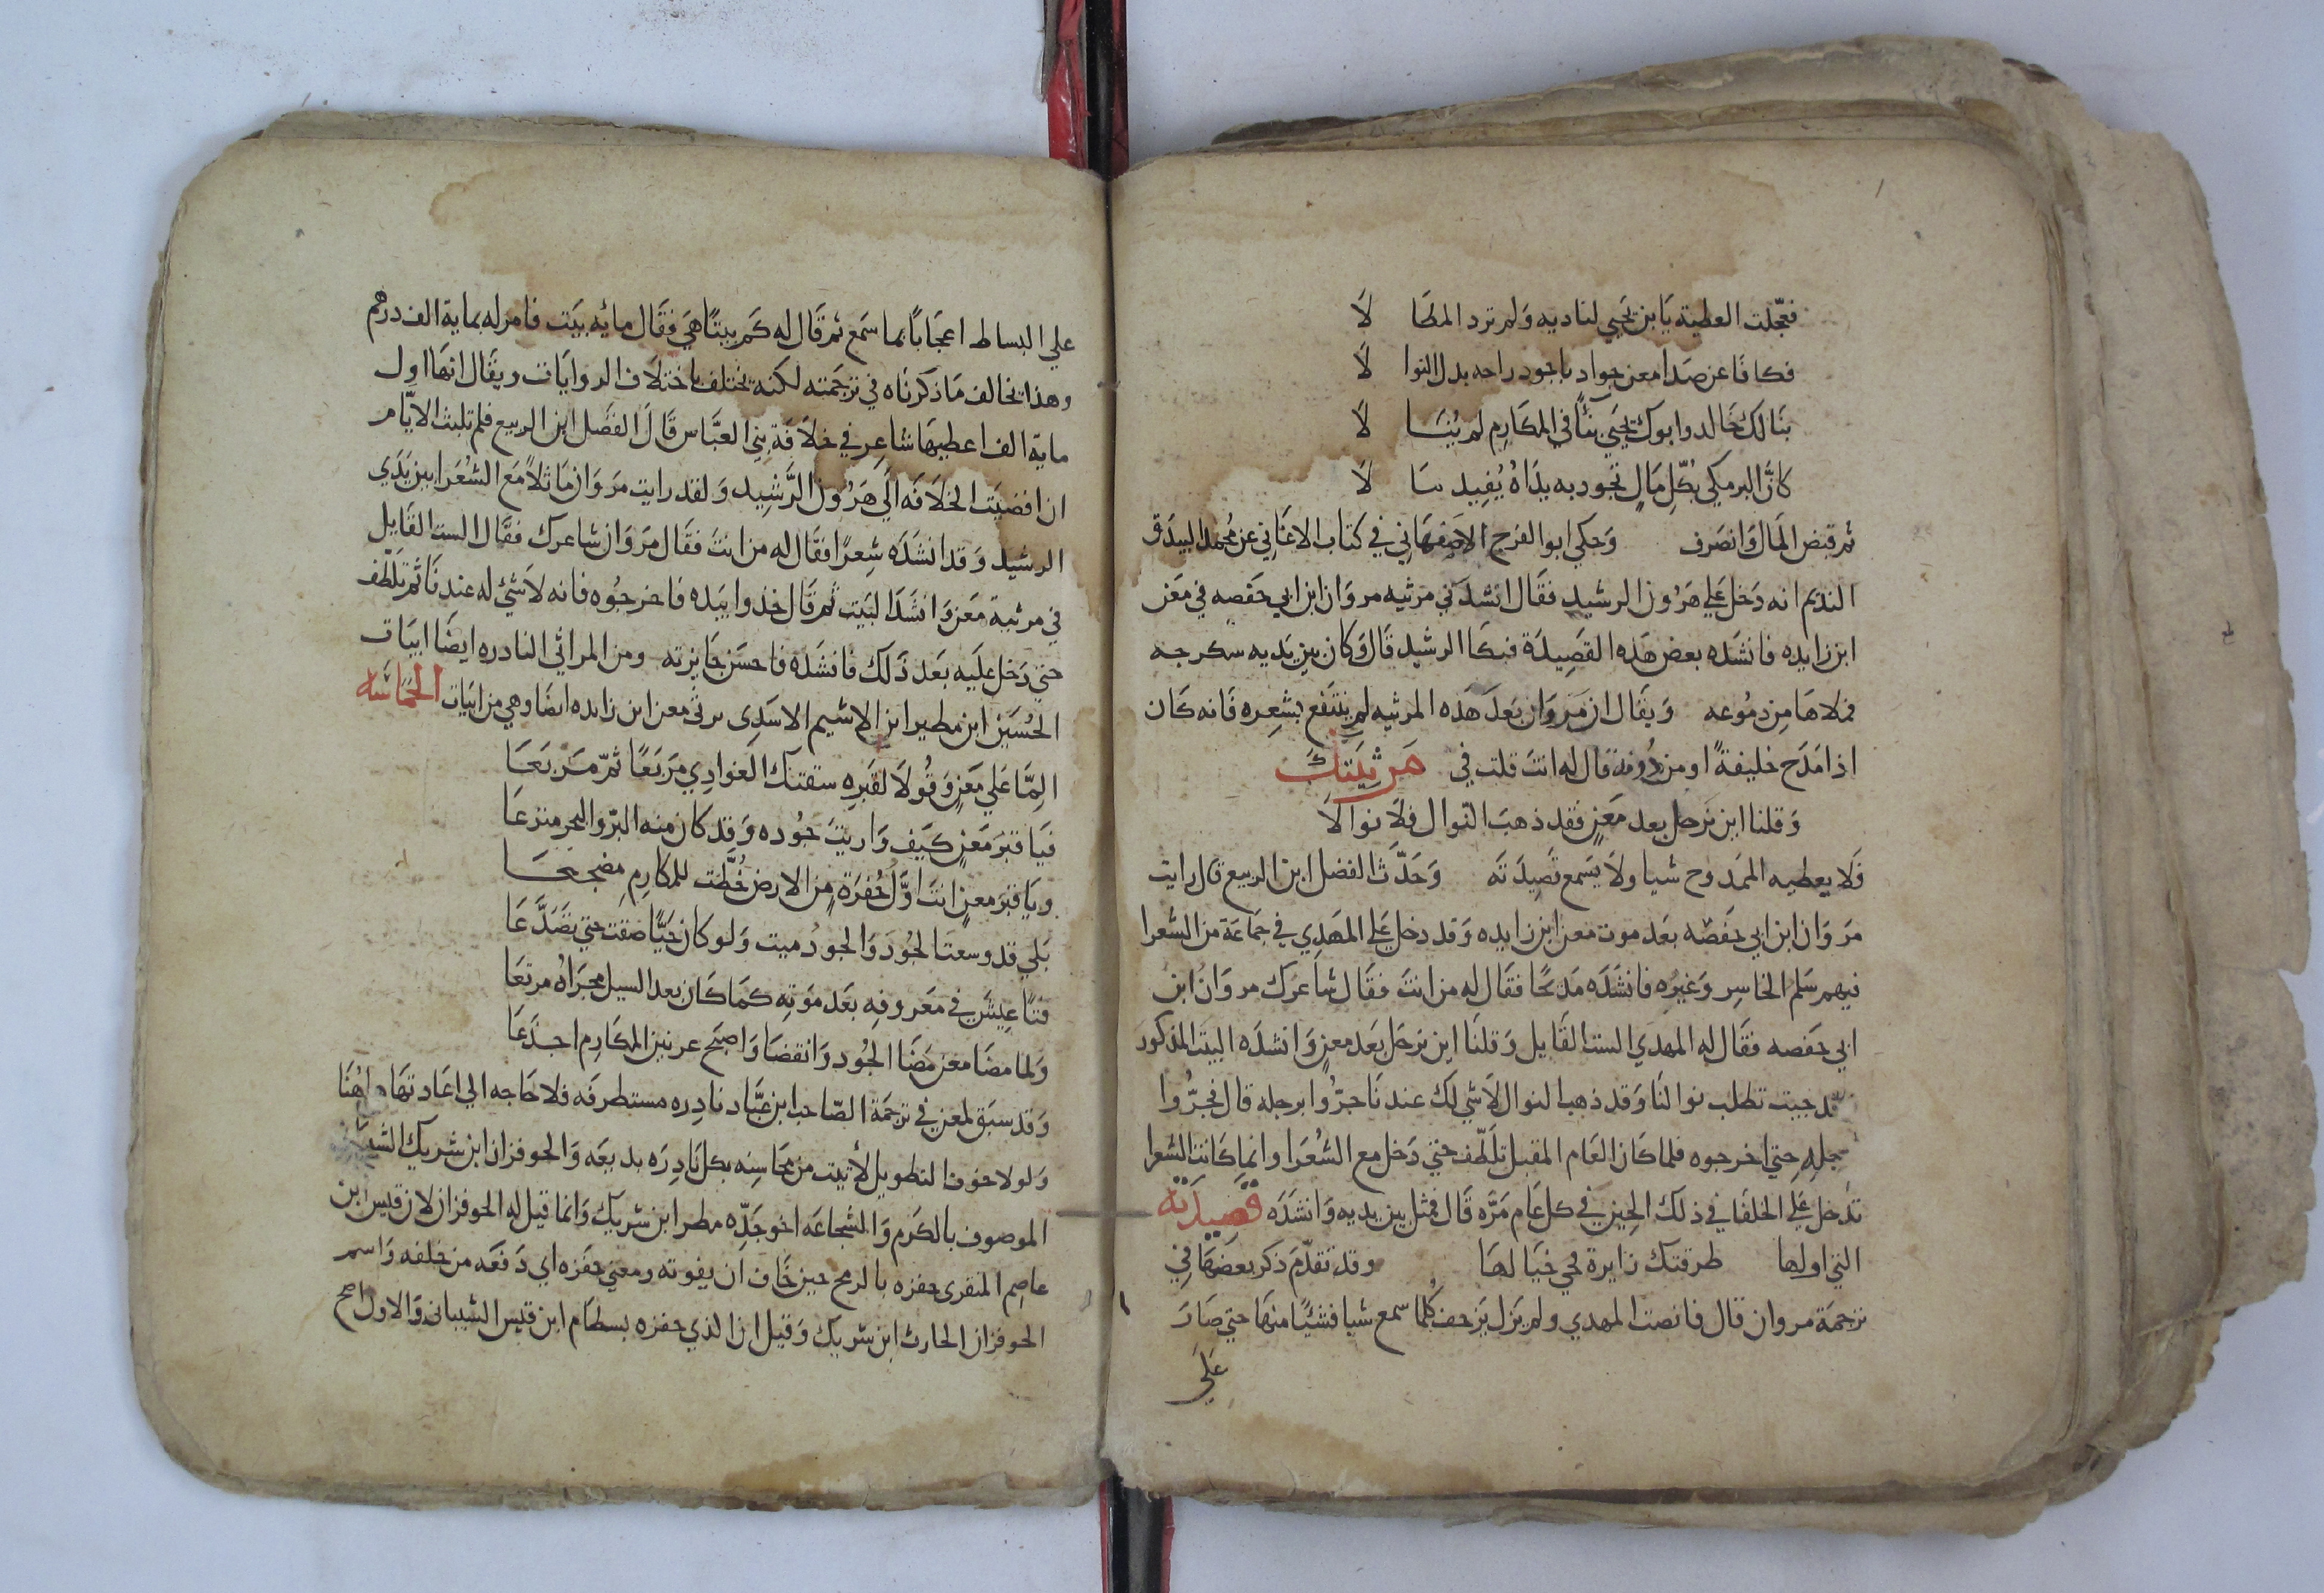 فعجّلت العطية يابن يحيى لناديه ولم ترد المطا لا
فكافا عن صدا معن جواد باجود راحه بدل النوا لا
بنا لك خالد وابوك يحيى بنًا في المكارم لم يُنَا لا
كانّ البرمكي بكل مالٍ تجود به يداهُ يُفيد ما لا
ثم قبض المال وانصرف وحكي ابو الفرج الاصفهاني في كتاب الاغاني عن محمد البيدق
النديم انه دخل علي هرون الرشيد فقال انشدني مرثيه مروان ابن ابي حفصه في معن
ابن زايده فانشده بعض هذه القصيدة فبكا الرشيد قال وكان بين يديه سكرجه
فملاها من دموعه ويقال ان مروان بعد هذه المرثيه لم ينتفع بشعره فانه كان
اذا مدح خليفةً او من دُونه قال له انت قلت في مرثيتك
وقلنا اين نرحل بعد معنٍ فقد ذهب النوال فلا نوالا
فلا يعطيه الممدوح شيا ولا يسمع قصيدته وحدّث الفضل ابن الربيع قال رايت
مروان ابن ابي حفصه بعد موت معن ابن زايده وقد دخل علي المهدي في جماعة من الشعرا
فيهم سلم الخاسر وغيره فانشده مدحًا فقال له من انت فقال شاعرك مروان ابن
ابي حفصه فقال له المهدي الست القايل وقلنا اين نرحل بعد معنٍ وانشده البيت المذكور
قد جيت تطلب نوالنا وقد ذهب النوال لا شي لك عندنا جرّوا برجله قال فجرُّوا
برجله حتى اخرجوه فلما كان العام المقبل تلطّف حتى دخل مع الشعرا وانما كانت الشعرا
تدخل علي الخلفا في ذلك الحين في كل عام مرّه قال فمثل بين يديه وانشده قصيدته
التي اولها طرقتك زايرة فحي خيالها وقد تقدّم ذكر بعضها في
ترجمة مروان قال فانصت المهدي ولم يزل يزحف كُلما سمع شيا فشيًا منها حتى صار
علَي
علي البساط اعجابًا بما سمع ثم قال له كم بيتًا هي فقال مائه بيت فامر له بماية الف درهم
وهذا يخالف ما ذكرناه في ترجمته لكنه يختلف باختلاف الروايات ويقال انها اول
ماية الف اعطيها شاعر في خلافة بني العبّاس قال الفضل ابن الربيع فلم تلبث الايّام
ان افضيت الخلافه الي هرون الرّشيد ولقد رايت مروان ماثلاً مع الشعرا بين يدي
الرشيد وقد انشده شعرًا فقال له من انت فقال مروان شاعرك فقال الست القايل
في مرثية معن وانشد البيت ثم قال خذوا بيده فاخرجُوه فانه لا شي له عندنا ثم تلطّف
حتى دخل عليه بعد ذلك فانشده فاحسن جايزته ومن المراثي النادره ايضًا ابيات
الحُسين ابن مطير ابن الاشيم الاسدي يرثى معن ابن زايده ايضًا وهي من ابيات الحماسه
المّا علي معنٍ وقولا لقبره سقتك الغوادي مربعًا ثمّ مربعَا
فيا قبر معنٍ كيف واريت جُوده وقد كان منه البرّ والبحر مترعَا
ويا قبر معنٍ انت اوّل حُفرةٍ من الارض خُطّت للمكارم مضجعَا
بلي قد وسعت الجُود والجود ميت ولو كان حيًّا ضقت حتى تصدّعَا
فتًا عِيشَ في معروفه بعد موته كما كان بعد السيل مجراهُ مرتعَا
ولما مضا معن مضا الجُود وانقضا واصبح عرنين المكارم اجدعَا
وقد سبق لمعن في ترجمة الصّاحب ابن عبّاد نادره مستطرفه فلا حاجه الي اعادتها هاهُنا
ولولا خوف التطويل لأتيت من محاسنه بكل نادره بديعه والحوفزان ابن شريك
الموصوف بالكرم والشجاعه اخو جدّه مطر ابن شريك وانما قيل له الحوفزان لان قيس ابن
عاصم المنقرى حفزه بالرمح حين خاف ان يفوته ومعني حفزه اي دفعه من خلفه واسم
الحوفزان الحارث ابن شريك وقيل ان الذي حفزه بسطام ابن قيس الشيباني والاول اصح